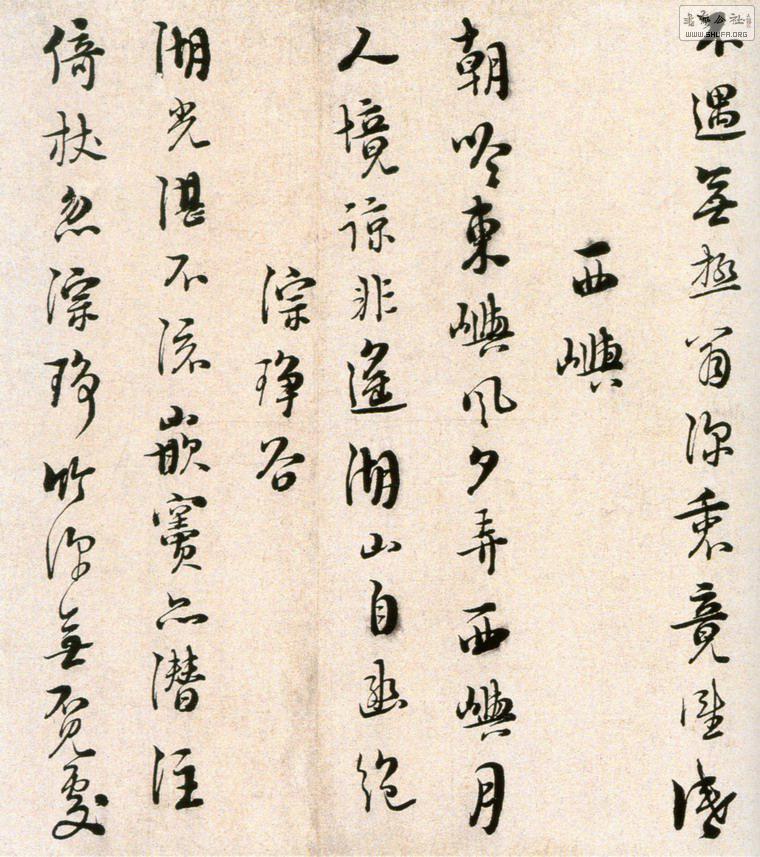 不遇無極翁深衷竟誰識
西嶼
朝吟東嶼風夕弄西嶼月
人境諒非遙湖山自幽絕
淙琤谷
湖光湛不流嵌竇亦潛注
倚杖忽淙琤竹深無覓處
書法公社
WWW.SHUFA.ORG